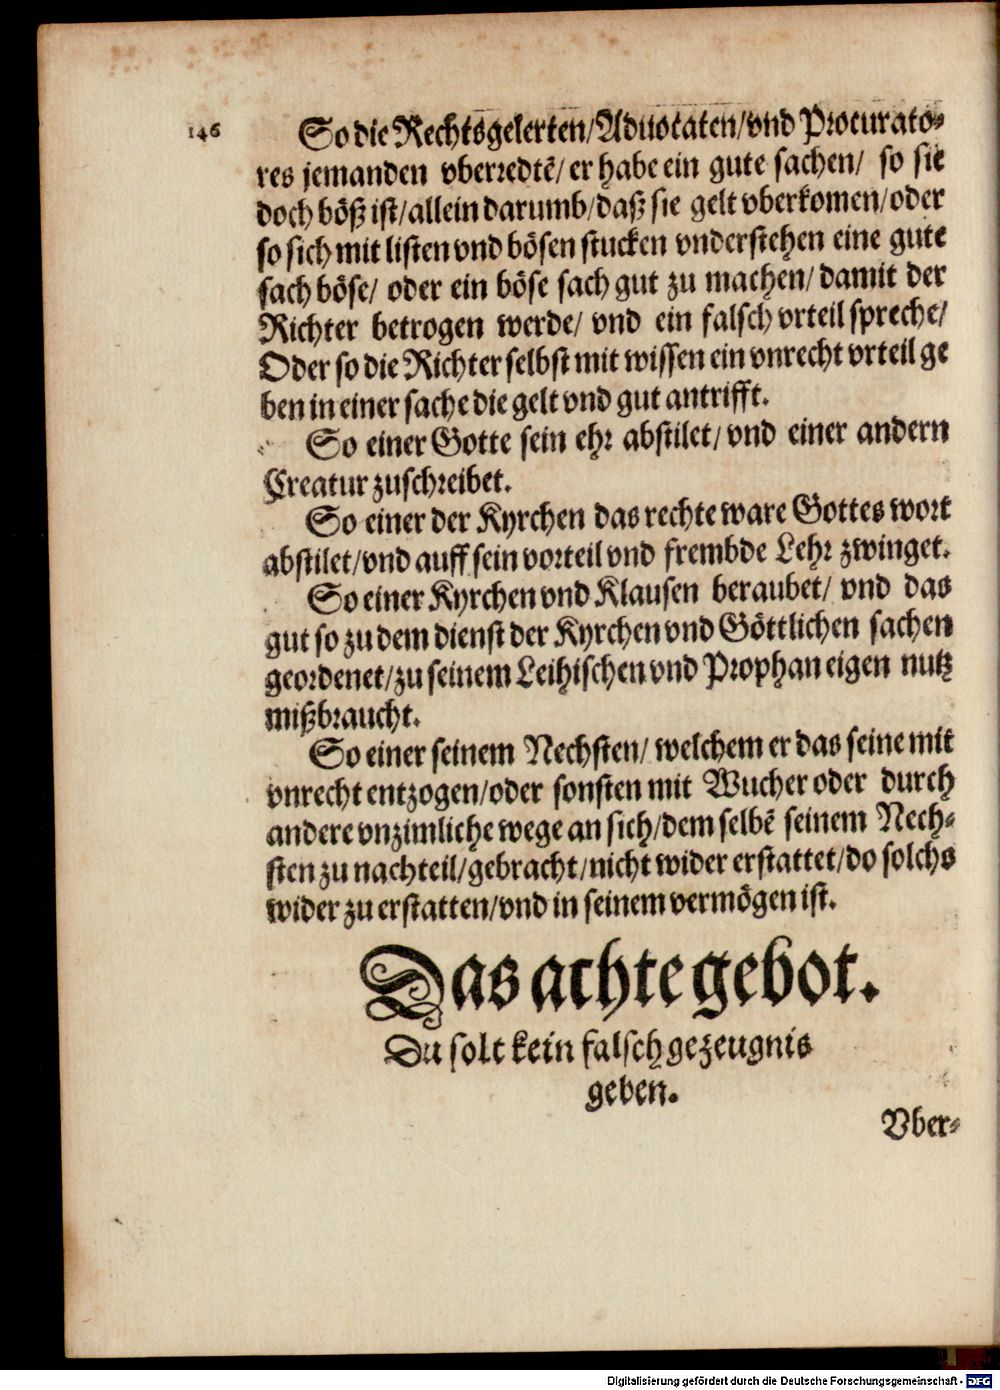 146
So die Rechtsgelerten/Aduocaten/vnd Procurato-
res jemanden vberredtē/ er habe ein gute sachen/ so sie
doch böß ist/allein darumb/daß sie gelt vberkomen/oder
so sich mit listen vnd bösen stucken vnderstehen eine gute
sach böse/ oder ein böse sach gut zu machen/ damit der
Richter betrogen werde/ vnd ein falsch vrteil spreche/
Oder so die Richter selbst mit wissen ein vnrecht vrteil ge
ben in einer sache die gelt vnd gut antrifft.
So einer Gotte sein ehr abstilet/ vnd einer andern
Creatur zuschreibet.
So einer der Kyrchen das rechte ware Gottes wort
abstilet/vnd auff sein vorteil vnd frembde Lehr zwinget.
So einer Kyrchen vnd Klausen beraubet/ vnd das
gut so zu dem dienst der Kyrchen vnd Göttlichen sachen
geordenet/zu seinem Leihischen vnd Prophan eigen nutz
mißbraucht.
So einer seinem Nechsten/ welchem er das seine mit
vnrecht entzogen/oder sonsten mit Wucher oder durch
andere vnzimliche wege an sich/dem selbē seinem Nech-
sten zu nachteil/gebracht/nicht wider erstattet/do solchs
wider zu erstatten/vnd in seinem vermögen ist.
Das achte gebot.
Du solt kein falsch gezeugnis
geben.
Vber-
Digitalisierung gefördert durch die Deutsche Forschungsgemeinschaft - DFG